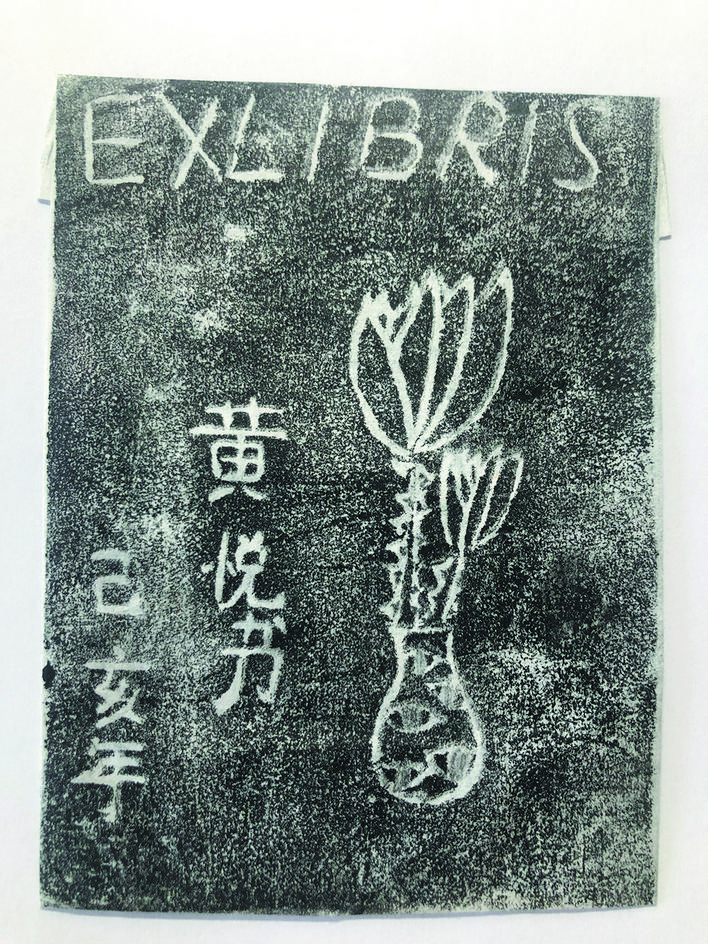 EXLIBRIS
黄悦书
己亥年